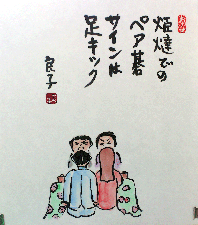 炬燵での
ペア碁
サインは
足キック
良子